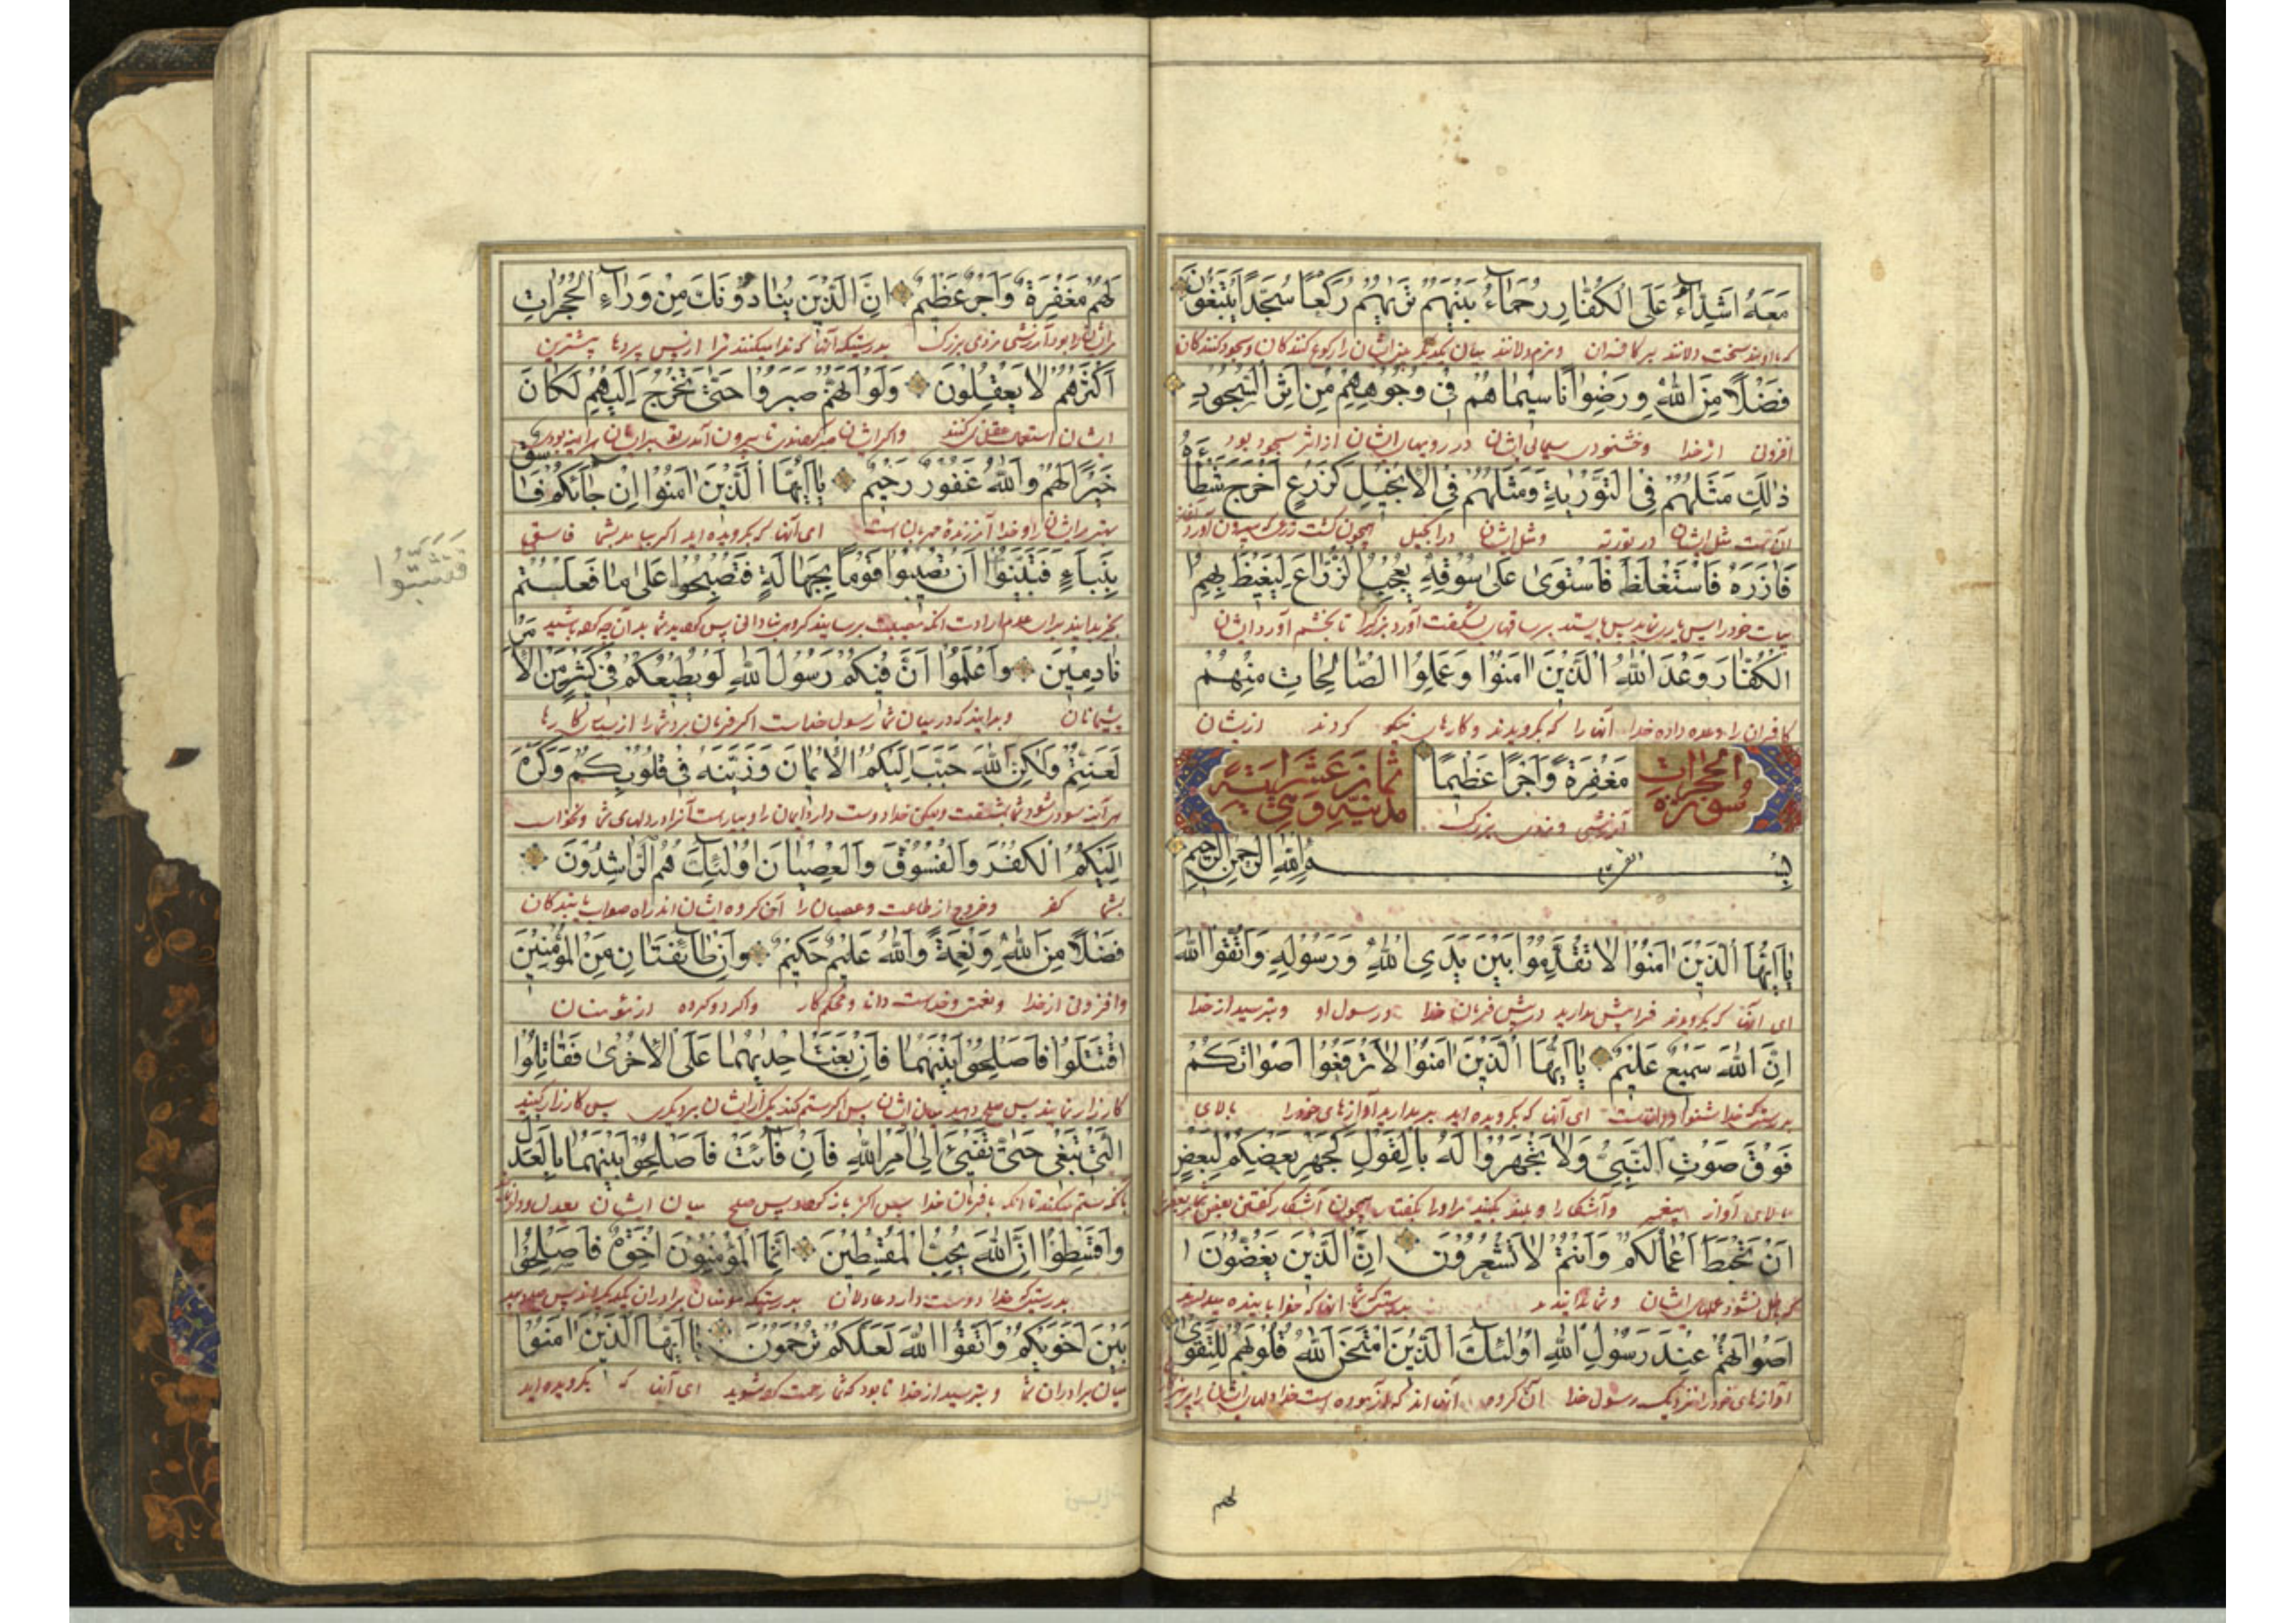 مَعَهُ اَشِدّاءُ عَلَى الْكُفّارِ رُحَماءُ بَيْنَهُمْ تَرٰيهُمْ رُكَّعًا سُجَّدًا يَبْتَغُونَ
که با اویند سخت دلانند بر کافران و نرم دلانند میان یکدیگر بینی ایشان را رکوع کنندگان و سجود کنندگان
فَضْلًا مِنَ اللّٰهِ وَرِضْوانًا سيماهُمْ فى وُجُوهِهِمْ مِنْ اَثَرِ السُّجُودِ
افزونی از خدا و خشنودی سیمای ایشان در رویهای ایشان از اثر سجود بود
ذٰلِكَ مَثَلُهُمْ فِى التَّوْرٰيةِ وَمَثَلُهُمْ فِى الْاِنْجيلِ كَزَرْعٍ اَخْرَجَ شَطْاَهُ
آنست مثل ایشان در توریة و مثل ایشان در انجیل همچون کشت زری که بیرون آورد
فَاٰزَرَهُ فَاسْتَغْلَظَ فَاسْتَوٰى عَلٰى سُوقِهِ يُعْجِبُ الزُّرّاعَ لِيَغيظَ بِهِمُ
تا بخشم آورد ایشان
الْكُفّارَ وَعَدَ اللّٰهُ الَّذينَ اٰمَنُوا وَعَمِلُوا الصّالِحاتِ مِنْهُمْ
کافران را وعده داده خدا آنها را که بگرویدند و کارهای نیکو کردند از ایشان
سورة والحجرات
مَغْفِرَةً وَاَجْرًا عَظيمًا
ثمان عشر اية وهى مدنية
آمرزشی و مزدی بزرگ
بِسْمِ اللّٰهِ الرَّحْمٰنِ الرَّحيمِ
يا اَيُّهَا الَّذينَ اٰمَنُوا لا تُقَدِّمُوا بَيْنَ يَدَىِ اللّٰهِ وَرَسُولِهِ وَاتَّقُوا اللّٰهَ
ای آنها که بگرویدند فرا پیش مدارید در پیش فرمان خدا و رسول او و بترسید از خدا
اِنَّ اللّٰهَ سَميعٌ عَليمٌ يا اَيُّهَا الَّذينَ اٰمَنُوا لا تَرْفَعُوا اَصْواتَكُمْ
بدرستیکه خدا شنوا و داناست ای آنها که بگرویده اید بر مدارید آوازهای خود را بالای
فَوْقَ صَوْتِ النَّبِىِّ وَلا تَجْهَرُوا لَهُ بِالْقَوْلِ كَجَهْرِ بَعْضِكُمْ لِبَعْضٍ
بالای آواز پیغمبر و آشکارا و بلند مکنید مر او را بگفتار همچون آشکار گفتن بعضی
اَنْ تَحْبَطَ اَعْمالُكُمْ وَاَنْتُمْ لا تَشْعُرُونَ اِنَّ الَّذينَ يَغُضُّونَ
که باطل نشود عملهای ایشان و شما ندانید
اَصْواتَهُمْ عِنْدَ رَسُولِ اللّٰهِ اُولٰئِكَ الَّذينَ امْتَحَنَ اللّٰهُ قُلُوبَهُمْ لِلتَّقْوٰى
آوازهای خود را نزدیک رسول خدا آن گروه آنها اند که
لهم
لَهُمْ مَغْفِرَةٌ وَاَجْرٌ عَظيمٌ اِنَّ الَّذينَ يُنادُونَكَ مِنْ وَراءِ الْحُجُراتِ
مر ایشان را بود آمرزشی مزدی بزرگ بدرستیکه آنها که ندا میکنند ترا از پس پردها بیشترین
اَكْثَرُهُمْ لا يَعْقِلُونَ وَلَوْ اَنَّهُمْ صَبَرُوا حَتّٰى تَخْرُجَ اِلَيْهِمْ لَكانَ
ایشان استعمال عقل نمیکنند و اگر ایشان صبر کردندی تا بیرون آمدی
خَيْرًا لَهُمْ وَاللّٰهُ غَفُورٌ رَحيمٌ يا اَيُّهَا الَّذينَ اٰمَنُوا اِنْ جائَكُمْ فاسِقٌ
بهتر مر ایشان را و خدا آمرزنده مهربان است ای آنها که بگرویده اید اگر بیاید بشما فاسقی
بِنَبَاءٍ فَتَبَيَّنُوا اَنْ تُصيبُوا قَوْمًا بِجَهالَةٍ فَتُصْبِحُوا عَلٰى ما فَعَلْتُمْ
فَتَثَبَّتُوا
نادِمينَ وَاعْلَمُوا اَنَّ فيكُمْ رَسُولَ اللّٰهِ لَوْ يُطيعُكُمْ فى كَثيرٍ مِنَ الْاَمْرِ
پشیمانان و بدانید که در میان شما رسول خداست اگر فرمان برد شما را از بسیاری کارها
لَعَنِتُّمْ وَلٰكِنَّ اللّٰهَ حَبَّبَ اِلَيْكُمُ الْايمانَ وَزَيَّنَهُ فى قُلُوبِكُمْ وَكَرَّهَ
اِلَيْكُمُ الْكُفْرَ وَالْفُسُوقَ وَالْعِصْيانَ اُولٰئِكَ هُمُ الرّاشِدُونَ
بشما کفر و خروج از طاعت و عصیان را آن گروه ایشان اند راه صواب یابندگان
فَضْلًا مِنَ اللّٰهِ وَنِعْمَةً وَاللّٰهُ عَليمٌ حَكيمٌ وَاِنْ طائِفَتانِ مِنَ الْمُؤْمِنينَ
و افزونی از خدا و نعمتی و خداست دانا و محکم کار و اگر دو گروه از مؤمنان
اقْتَتَلُوا فَاَصْلِحُوا بَيْنَهُما فَاِنْ بَغَتْ اِحْدٰيهُما عَلَى الْاُخْرٰى فَقاتِلُوا
کارزار نمایند پس صلح دهید میان ایشان پس اگر ستم کند یکی از ایشان بر دیگری پس کارزار کنید
الَّتى تَبْغى حَتّٰى تَفىءَ اِلٰى اَمْرِ اللّٰهِ فَاِنْ فائَتْ فَاَصْلِحُوا بَيْنَهُما بِالْعَدْلِ
وَاَقْسِطُوا اِنَّ اللّٰهَ يُحِبُّ الْمُقْسِطينَ اِنَّمَا الْمُؤْمِنُونَ اِخْوَةٌ فَاَصْلِحُوا
بدرستیکه خدا دوست دارد عادلان بدرستیکه مؤمنان برادران یکدیگراند پس صلح دهید
بَيْنَ اَخَوَيْكُمْ وَاتَّقُوا اللّٰهَ لَعَلَّكُمْ تُرْحَمُونَ يا اَيُّهَا الَّذينَ اٰمَنُوا
میان برادران شما و بترسید از خدا تا بود که شما رحمت کرده شوید ای آنها که بگرویده اید